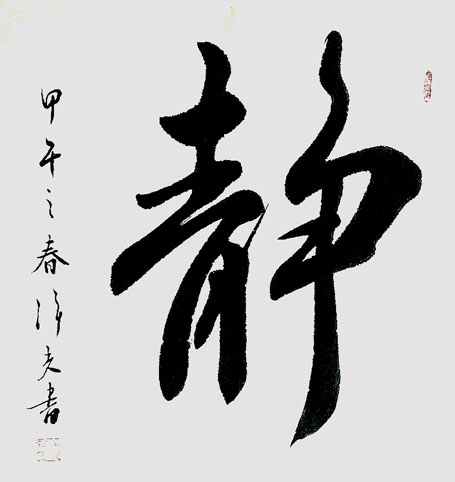 静
甲午之春夫書